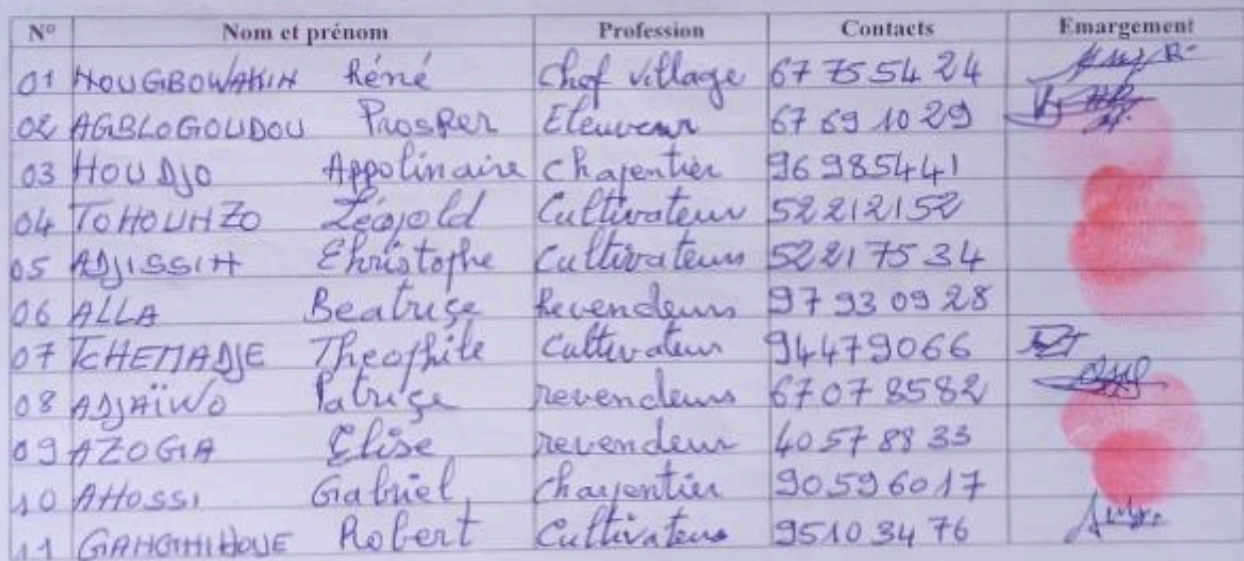 N° Nom et prénom Profession Contacts Emargement
01 HOUGBOWAKIN Réné Chef village 67 75 54 24
02 AGBLOGOUDOU Prosper Eleuveur 67 69 10 29
03 HOUDJO Appolinaire Chapentier 96985441
04 TOHOUNZO Léopold Cultivateur 52212152
05 ADJISSIH Christophe Cultivateurs 52217534
06 ALLA Beatrice Revendeurs 97 93 09 28
07 TCHEMADJE Theophile Cultivateur 94479066
08 ADJAÏWO Patrice revendeurs 67078582
09 AZOGIA Elise revendeur 40 57 88 33
10 AHOSSI Gabriel Chapentier 90596017
11 Robert Cultivateurs 95103476